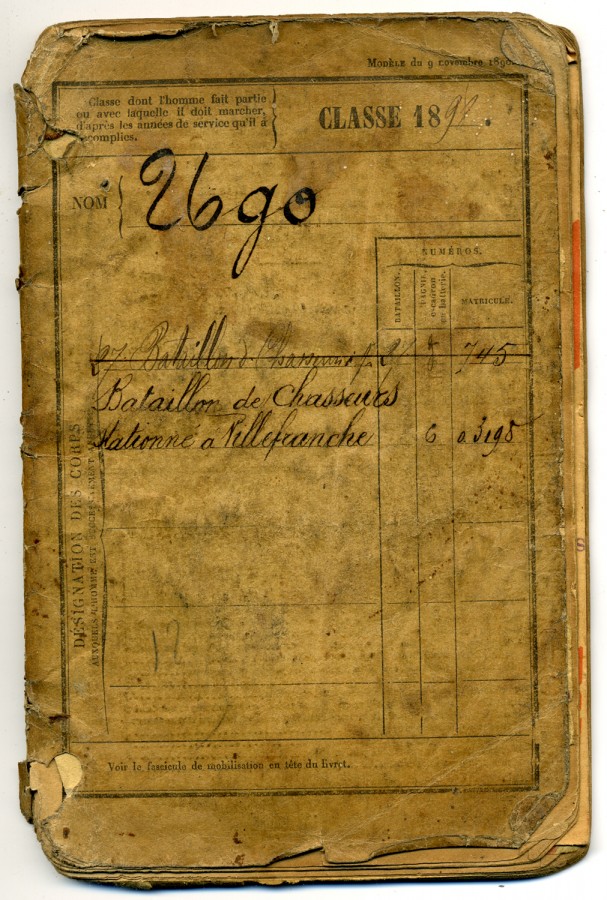 MODÈLE du 9 novembre 1890
Classe dont l'homme fait partie
ou avec laquelle il doit marcher,
d'après les années de service qu'il a
accomplies.
CLASSE 189
NOM
Ugo
NUMÉROS.
BATAILLON.
en batterie.
MATRICULE.
27 Bataillon de Chasseurs 27 745
Bataillon de Chasseurs
stationné à Villefranche 6 03198
DÉSIGNATION DES CORPS
12
Voir le fascicule de mobilisation en tête du livret.